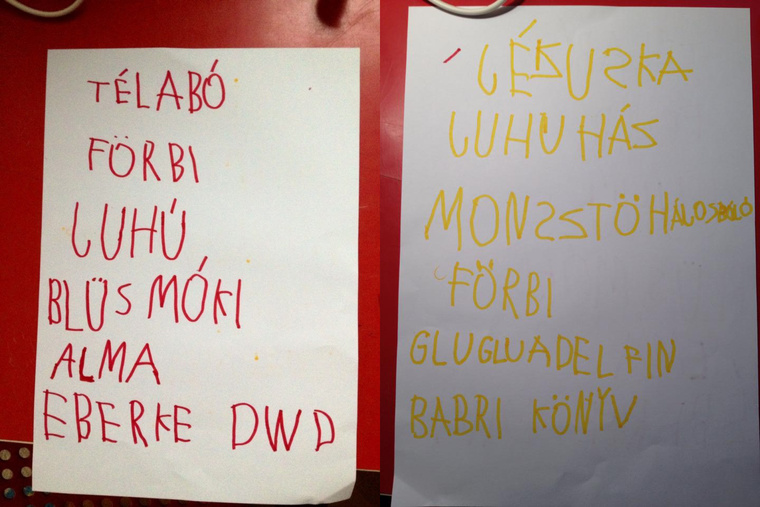 TÉLABÓ
FÖRBI
LUHÚ
BLÜS MÓKI
ALMA
EBERKE DWD
LÉKUSKA
LUHUHÁS
MONSSTÖHÁLOSZÓLÓ
FÖRBI
GLUGLUADELFIN
BABRI KÖNYV